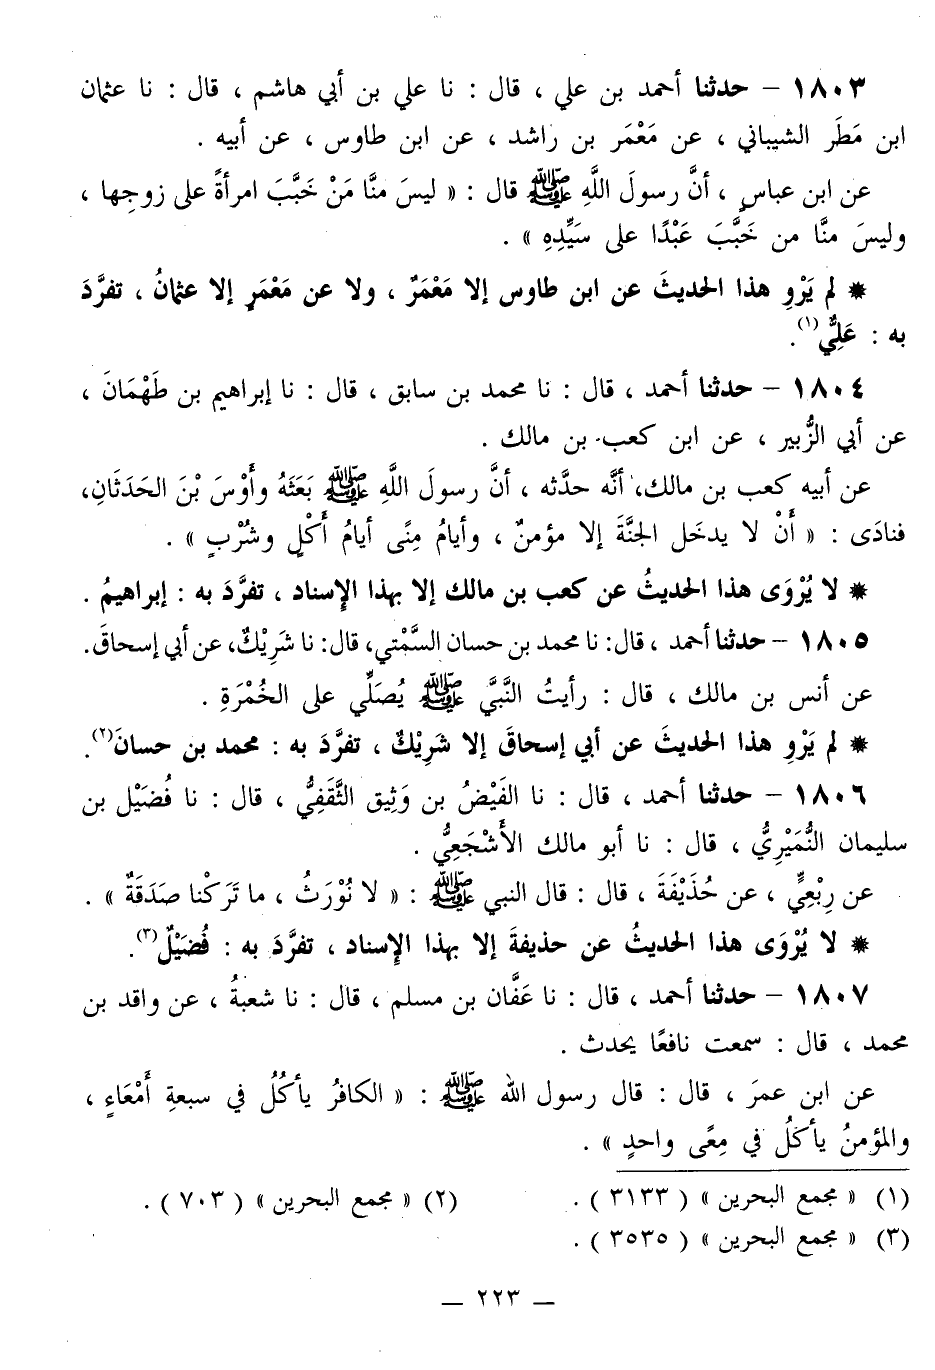 ١٨٠٣ – حدثنا أحمد بن علي ، قال : نا علي بن أبي هاشم ، قال : نا عثمان
ابن مَطَر الشيباني ، عن مَعْمَر بن راشد ، عن ابن طاوس ، عن أبيه .
عن ابن عباسٍ ، أنَّ رسولَ اللَّهِ ﷺ قال : « ليسَ منَّا مَنْ خَبَّبَ امرأةً على زوجِها ،
وليسَ منَّا من خَبَّبَ عَبْدًا على سَيِّدِهِ » .
* لم يَرْوِ هذا الحديثَ عن ابن طاوس إلا مَعْمَرٌ ، ولا عن مَعْمَرٍ إلا عثمانُ ، تفرَّدَ
به : عَلِيٌّ(١).
١٨٠٤ – حدثنا أحمد ، قال : نا محمد بن سابق ، قال : نا إبراهيم بن طَهْمَانَ ،
عن أبي الزُّبير ، عن ابن كعب بن مالك .
عن أبيه كعب بن مالك، أنَّه حدَّثه ، أنَّ رسولَ اللَّهِ ﷺ بَعَثَهُ وأَوْسَ بْنَ الحَدَثَانِ،
فنادَى : « أَنْ لا يدخَل الجنَّةَ إلا مؤمنٌ ، وأيامُ مِنًى أيامُ أَكْلٍ وشُرْبٍ » .
* لا يُرْوَى هذا الحديثُ عن كعب بن مالك إلا بهذا الإسناد ، تفرَّدَ به : إبراهيمُ .
١٨٠٥ – حدثنا أحمد ، قال: نا محمد بن حسان السَّمْتي، قال: نا شَرِيْكٌ، عن أبي إسحاقَ.
عن أنس بن مالك ، قال : رأيتُ النَّبيَّ ﷺ يُصَلِّي على الخُمْرَةِ .
* لم يَرْوِ هذا الحديثَ عن أبي إسحاقَ إلا شَرِيْكٌ ، تفرَّدَ به : محمد بن حسانَ(٢).
١٨٠٦ – حدثنا أحمد ، قال : نا الفَيْضُ بن وَثِيق الثَّقَفِيُّ ، قال : نا فُضَيْل بن
سليمان النُّمَيْرِيُّ ، قال : نا أبو مالك الأَشْجَعِيُّ .
عن رِبْعِيٍّ ، عن حُذَيْفَةَ ، قال : قال النبي ﷺ : « لا نُوْرَثُ ، ما تَرَكْنا صَدَقَةٌ » .
* لا يُرْوَى هذا الحديثُ عن حذيفةَ إلا بهذا الإسناد ، تفرَّدَ به : فُضَيْلٌ(٣).
١٨٠٧ – حدثنا أحمد ، قال : نا عَفَّان بن مسلم ، قال : نا شعبةُ ، عن واقد بن
محمد ، قال : سمعت نافعًا يحدث .
عن ابن عمرَ ، قال : قال رسول الله ﷺ : « الكافرُ يأكُلُ في سبعةِ أَمْعَاءٍ ،
والمؤمنُ يأكلُ في مِعًى واحدٍ » .
(١) « مجمع البحرين » ( ٣١٣٣ ) . (٢) « مجمع البحرين » ( ٧٠٣ ) .
(٣) « مجمع البحرين » ( ٣٥٣٥ ) .
– ٢٢٣ –